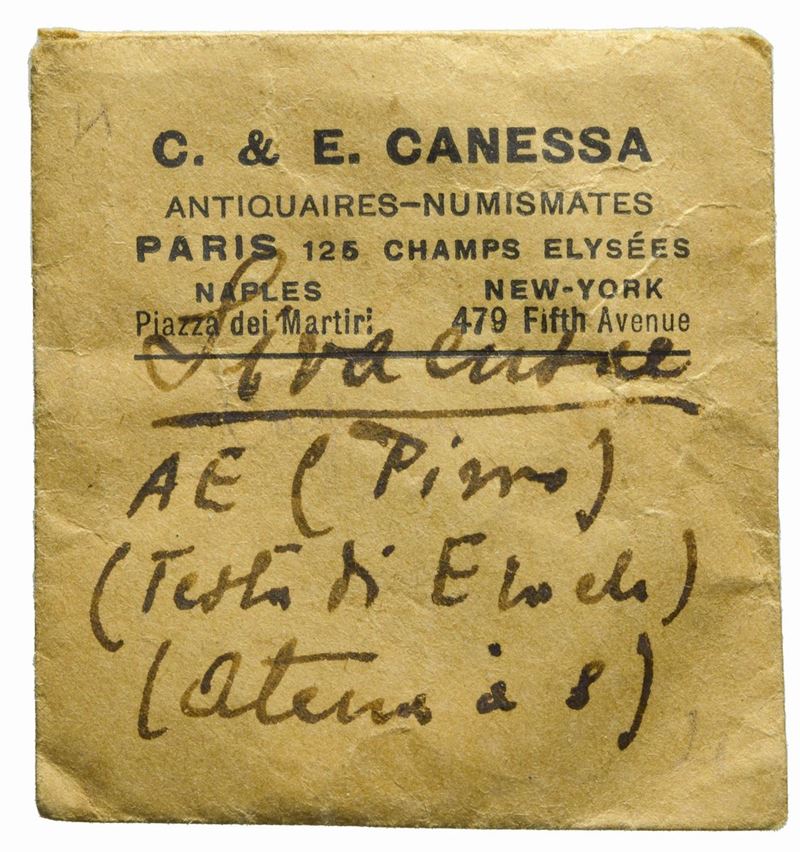 C. & E. CANESSA
ANTIQUAIRES-NUMISMATES
PARIS 125 CHAMPS ELYSÉES
NAPLES NEW-YORK
Piazza dei Martiri 479 Fifth Avenue
Siracusae
AE (Pirro)
(Testa di Eracle)
(Atena a s)